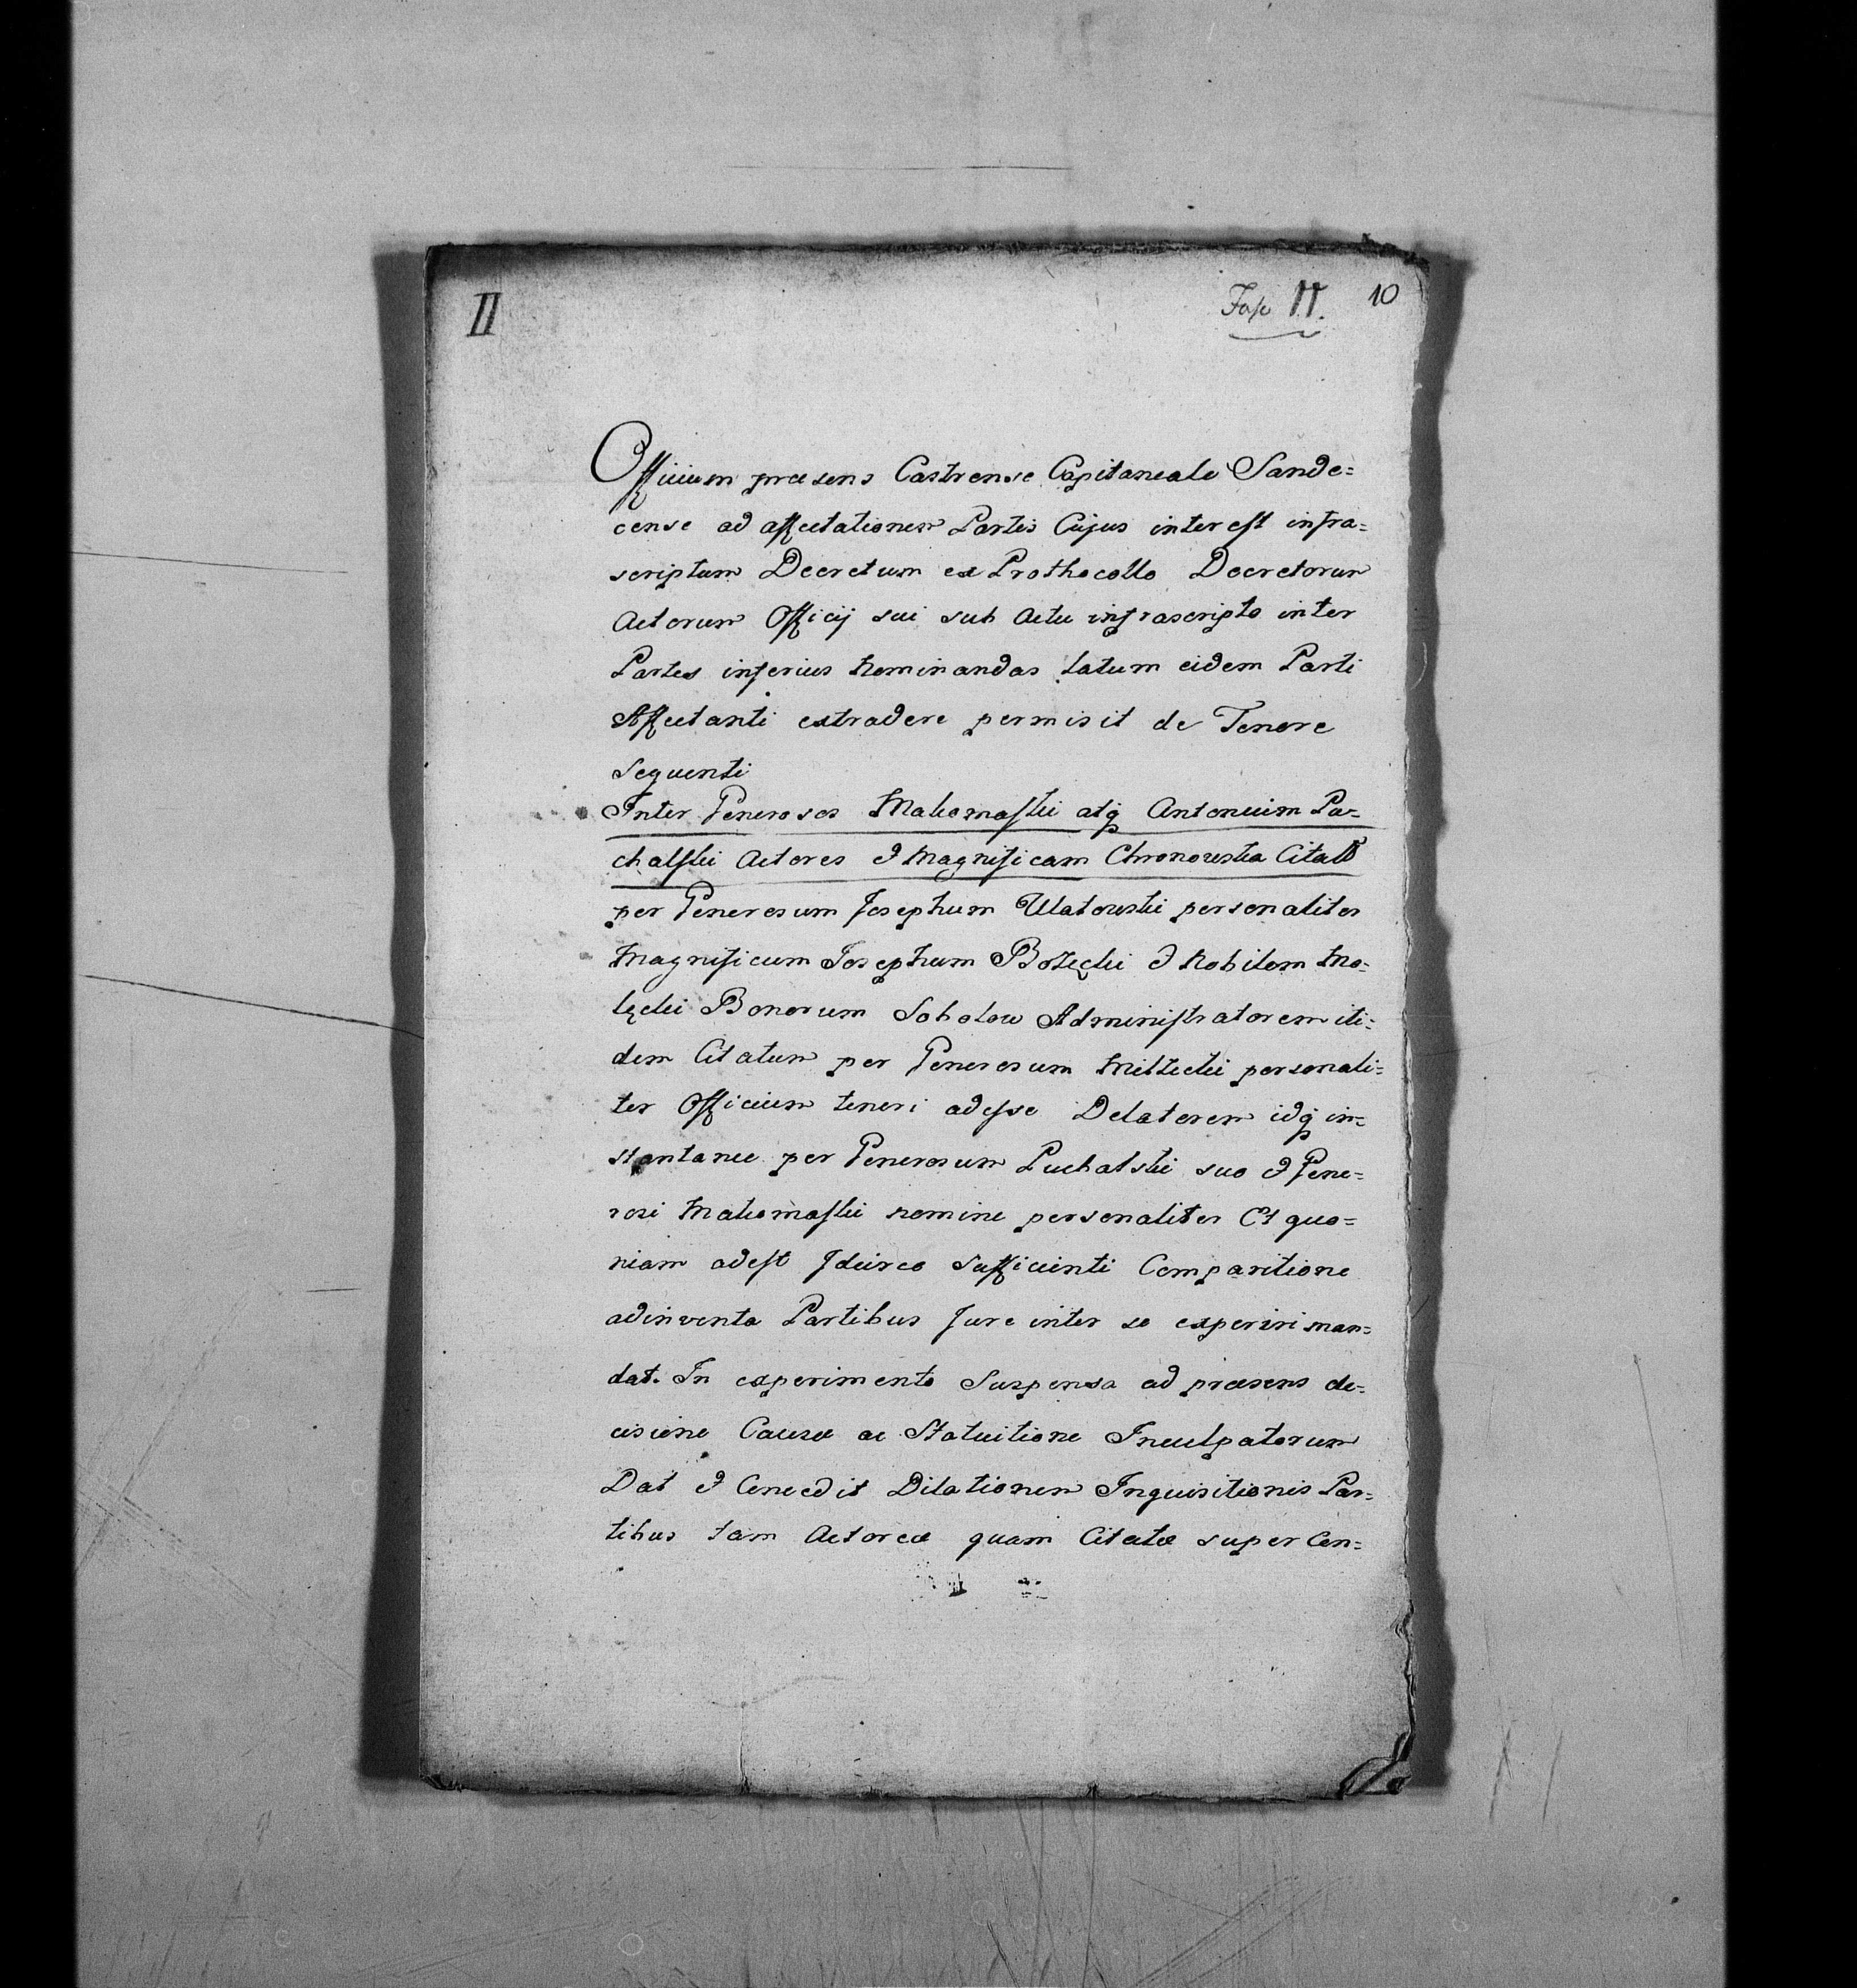 II
Fasc II. 10
Officium præsens Castrense Capitaneale Sande=
cense ad affectationem Partis Cujus interest infra=
scriptum Decretum ex Prothocollo Decretorum
Actorum Officij sui sub Actu infrascripto inter
Partes inferius Nominandas latum eidem Parti
Affectanti extradere permisit de Tenore
Sequenti
Inter Generosos Makomaski atq Antonium Pu=
chalski Actores & Magnificam Chronowska Citat
per Generosum Josephum Ulatowski personaliter
Magnificum Josephum Bozęcki & Nobilem Mo=
lęcki Bonorum Sobolow Administratorem iti=
dem Citatum per Generosum personali=
ter Officium teneri adesse Delatorem idq in=
stantanee per Generosum Puchalski suo & Gene=
rosi Makomaski nomine personaliter Et quo=
niam adest Idcirco Sufficienti Comparitione
adinventa Partibus Jure inter se experiri man=
dat. In experimento Suspensa ad præsens de=
cisione Causæ ac Statuitione Inculpatorum
Dat & Concedit Dilationem Inquisitionis Par=
tibus tam Actoreæ quam Citatæ super Con=